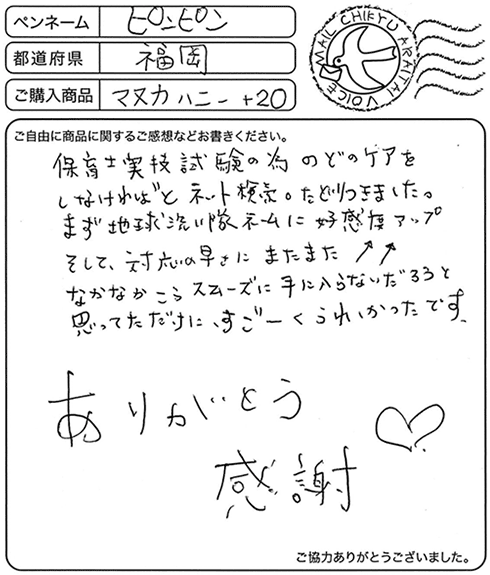 ペンネーム ピンピン
都道府県 福岡
ご購入商品 マヌカハニー +20
MAIL CHIKYU ARAITAI VOICE
ご自由に商品に関するご感想などお書きください。
保育士実技試験の為 のどのケアを
しなければ”と ネット検索。たどりつきました。
まず地球洗い隊ネームに 好感度アップ
そして、対応の早さに またまた ↗↗
なかなか こうスムーズに手に入らないだろうと
思ってただけに、すご～くうれしかったです。
ありがとう
感謝
ご協力ありがとうございました。